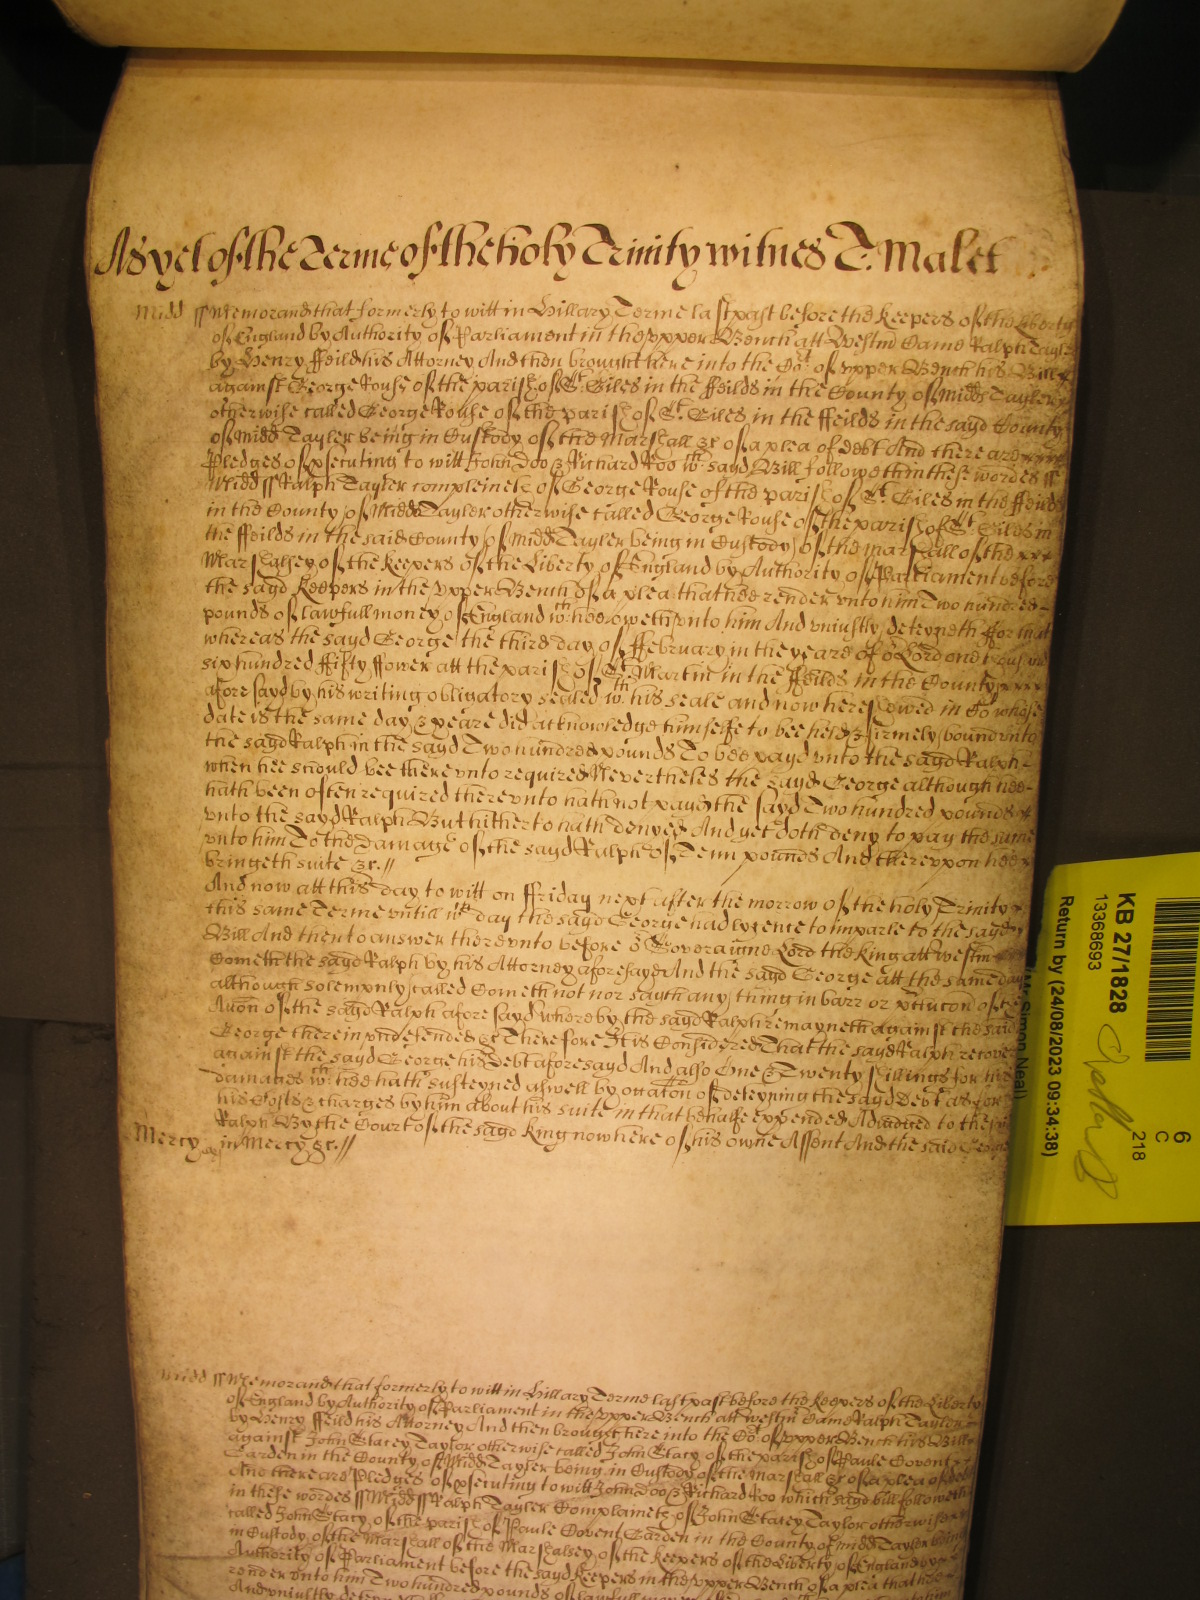 As yet of the Terme of the holy Trinity witnes T. Malet
Midd ss Memorand that formerly to witt in Hillary Terme last past before the Keepers of the Liberty
of England by Authority of Parliament in the upper Bench att Westm Came Ralph Tayler
by Henry Feild his Attorney And then brought here into the Cort of upper Bench his Bill
against George Rouse of the parish of St. Giles in the Feilds in the County of Midd Tayler
otherwise called George Rouse of the parish of St. Giles in the Feilds in the sayd County
of Midd Tayler being in Custody of the Marshall &c of a plea of debt And there are
Pledges of psecuting to witt John Doo & Richard Roo wch sayd Bill followeth in these wordes ss
Midd ss Ralph Tayler compleineth of George Rouse of the parish of St. Giles in the Feilds
in the County of Midd Tayler otherwise called George Rouse of the parish of St. Giles in
the Feilds in the said County of Midd Tayler being in Custody of the marshall of the
Marshalsey of the Keepers of the Liberty of England by Authority of Parliament before
the sayd Keepers in the upper Bench of a plea that hee render unto him Two hundred
pounds of lawfull money of England wch hee oweth unto him And uniustly deteyneth For that
whereas the sayd George the third day of February in the yeare of or Lord one thousand
six hundred Fifty Fower att the parish of St. Martin in the Feilds in the County
aforesayd by his writing obligatory sealed wth his seale and now here shewed in Co whose
date is the same day & yeare did acknowledge himselfe to bee held & firmely bound unto
the sayd Ralph in the sayd Two hundred pounds To bee payd unto the sayd Ralph
when hee should bee there unto required Nevertheles the sayd George although hee
hath been often required there unto hath not payd the sayd Two hundred pounds
unto the sayd Ralph But hitherto hath denyed And yet doth deny to pay the same
unto him To the Damage of the sayd Ralph of Tenn pounds And thereupon hee
bringeth suite &c.//
And now att this day to witt on Friday next after the morrow of the holy Trinity
this same Terme untill wch day the sayd George had lycence to imparle to the sayd
Bill And then to answer thereunto before or Soveraigne Lord the King att Westm
Cometh the sayd Ralph by his Attorney aforesayd And the sayd George att the same day
although solempnly called Cometh not nor sayth any thing in barr or of the
Accon of the sayd Ralph aforesayd whereby the sayd Ralph remayneth against the said
George therein undefended &c Therefore It is Considered That the sayd Ralph recover
against the sayd George his Debt aforesayd And also One & Twenty shillings for his
damages wch hee hath susteyned aswell by occation of deteyning the sayd Debt as for
his Costs & charges by him about his suite in that behalfe expended Adiudged to the sayd
Ralph By the Court of the sayd King now here of his owne Assent And the said George
Mercy in Mercy &c.//
Midd ss Memorand that formerly to witt in Hillary Terme last past before the Keepers of the Liberty
of England by Authority of Parliament in the upper Bench att westm Came Ralph Tayler
by Henry Feild his Attorney And then brought here into the Cort of upper Bench his Bill
against John Stacey Taylor otherwise called John Stacy of the parish of Paule Covent
Garden in the County of Midd Tayler being in Custody of the Marshall &c of a plea of debt
And there are Pledges of psecuting to witt John Doo & Richard Roo which sayd bill followeth
in these wordes ss Midd ss Ralph Tayler Complaineth of John Stacey Taylor otherwise
called John Stacy of the parish of Paule Covent Garden in the County of midd Tayler being
in Custody of the Marshall of the Marshalsey of the Keepers of the Liberty of England by
Authority of Parliament before the sayd Keepers in the upper Bench of a plea that hee
render unto him Two hundred pounds of lawfull
And uniustly
KB 27/1828
13368693
Return by (24/08/2023 09:34:38)
(Mr Simon Neal)
6
C
218